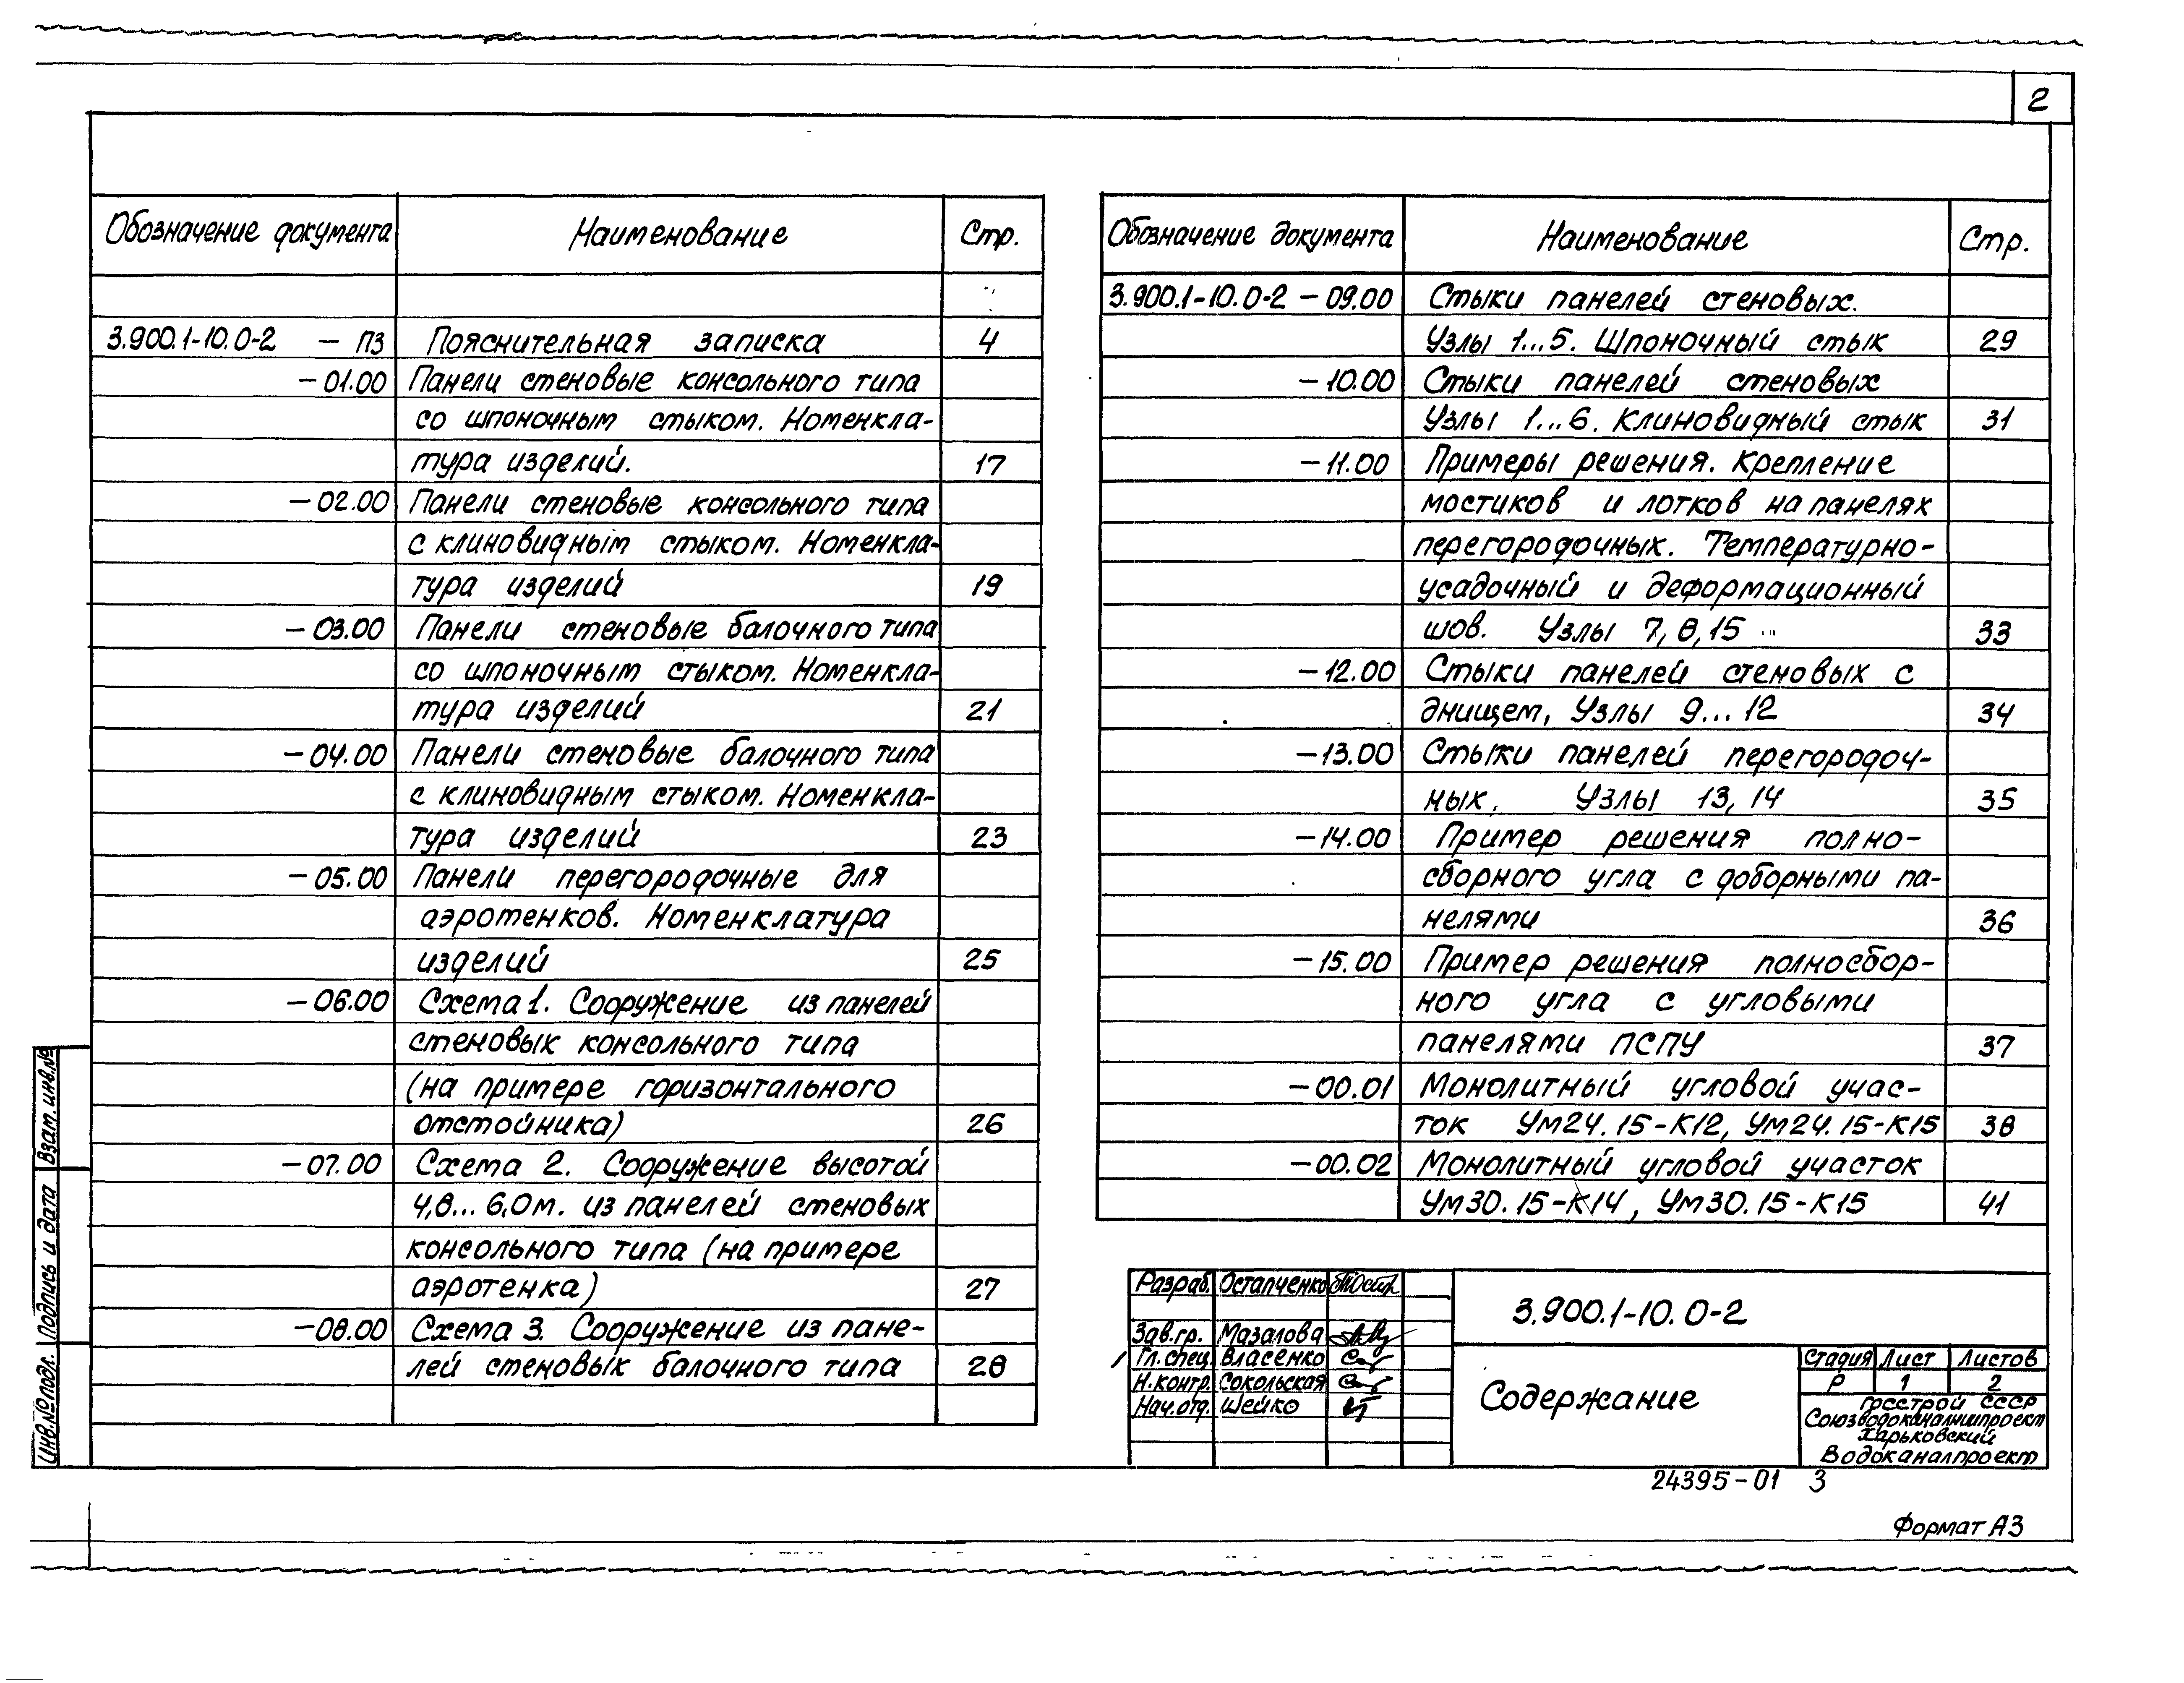 2
Обозначение документа Наименование Стр.
3.900.1-10.0-2 - ПЗ Пояснительная записка 4
-01.00 Панели стеновые консольного типа
со шпоночным стыком. Номенкла-
тура изделий. 17
-02.00 Панели стеновые консольного типа
с клиновидным стыком. Номенкла-
тура изделий 19
-03.00 Панели стеновые балочного типа
со шпоночным стыком. Номенкла-
тура изделий 21
-04.00 Панели стеновые балочного типа
с клиновидным стыком. Номенкла-
тура изделий 23
-05.00 Панели перегородочные для
аэротенков. Номенклатура
изделий 25
-06.00 Схема 1. Сооружение из панелей
стеновых консольного типа
(на примере горизонтального
отстойника) 26
-07.00 Схема 2. Сооружение высотой
4,8... 6,0м. из панелей стеновых
консольного типа (на примере
аэротенка) 27
-08.00 Схема 3. Сооружение из пане-
лей стеновых балочного типа 28
Обозначение документа Наименование Стр.
3.900.1-10.0-2 - 09.00 Стыки панелей стеновых.
Узлы 1...5. Шпоночный стык 29
-10.00 Стыки панелей стеновых
Узлы 1...6. Клиновидный стык 31
-11.00 Примеры решения. Крепление
мостиков и лотков на панелях
перегородочных. Температурно-
усадочный и деформационный
шов. Узлы 7, 8, 15 33
-12.00 Стыки панелей стеновых с
днищем, Узлы 9...12 34
-13.00 Стыки панелей перегородоч-
ных, Узлы 13, 14 35
-14.00 Пример решения полно-
сборного угла с доборными па-
нелями 36
-15.00 Пример решения полносбор-
ного угла с угловыми
панелями ПСПУ 37
-00.01 Монолитный угловой учас-
ток Ум24.15-К12, Ум24.15-К15 38
-00.02 Монолитный угловой участок
Ум30.15-К14, Ум30.15-К15 41
Разраб. Остапченко
Зав.гр. Мазалова
Гл.спец. Власенко
Н.контр. Сокольская
Нач.отд. Шейко
3.900.1-10.0-2
Содержание
Стадия Лист Листов
Р 1 2
Госстрой СССР
Союзводоканалниипроект
Харьковский
Водоканалпроект
24395-01 3
Формат А3
Взам. инв.№
Подпись и дата
Инв.№подл.